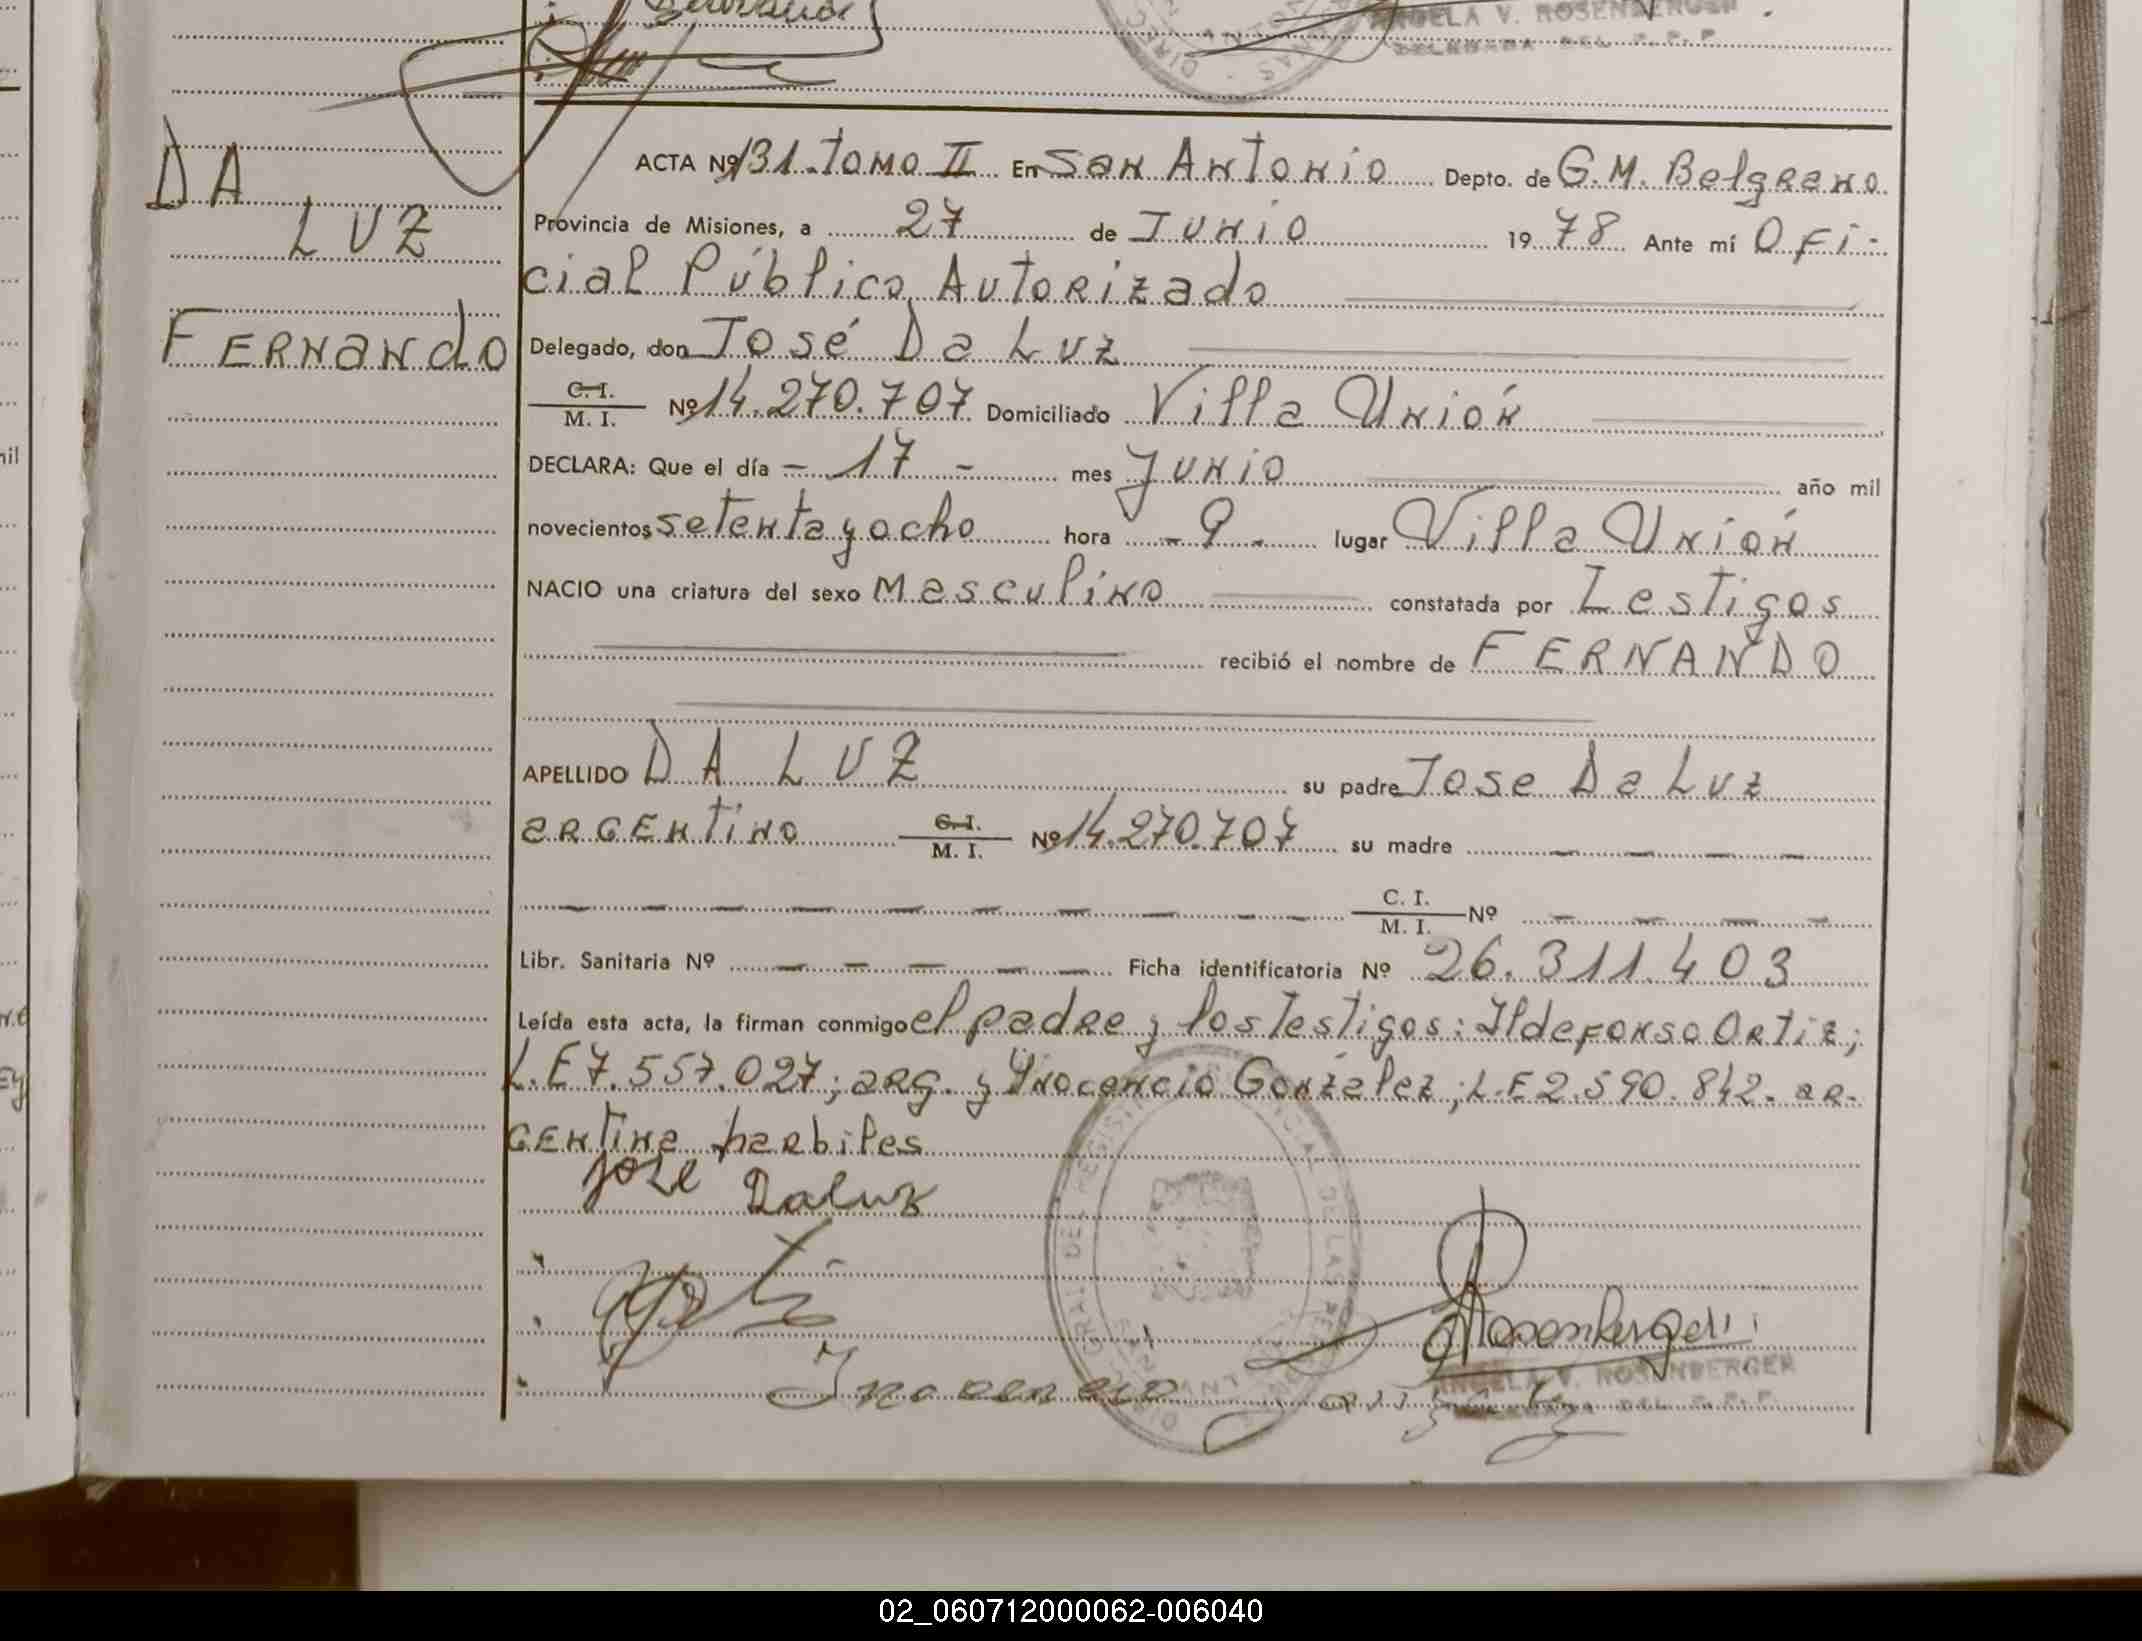 ANGELA V. ROSENBERGER
DELEGADA DEL R.P.P.
DA
LUZ
FERNANDO
ACTA Nº 131. TOMO II En SAN ANTONIO Depto. de G. M. Belgrano
Provincia de Misiones, a 27 de JUNIO 1978 Ante mí Ofi-
cial Público Autorizado
Delegado, don José Da Luz
C. I.
M. I. Nº 14.270.707 Domiciliado Villa Unión
DECLARA: Que el día - 17 - mes Junio año mil
novecientos setenta y ocho hora - 9 - lugar Villa Unión
NACIO una criatura del sexo Masculino constatada por Testigos
recibió el nombre de FERNANDO
APELLIDO DA LUZ su padre Jose Da Luz
argentino C. I.
M. I. Nº 14.270.707 su madre - - - -
- - - - - - - - - - C. I.
M. I. Nº - - - -
Libr. Sanitaria Nº - - - - - Ficha identificatoria Nº 26.311.403
Leída esta acta, la firman conmigo el padre y los Testigos: Ildefonso Ortiz;
L.E 7.557.027; arg. y Ynocencio González; L.E 2.590.842. ar-
gentina harbiles
Joze Daluz
Rosenberger
Inocencio
ANGELA V. ROSENBERGER
DELEGADA DEL R.P.P.
02_060712000062-006040